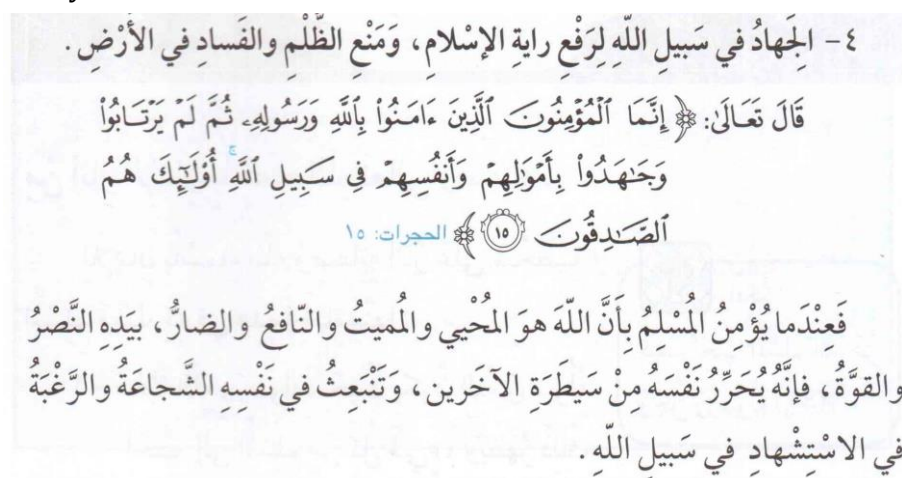 ٤- الجَهادُ في سَبيل اللّه لرَفْع راية الإسْلام، ومَنْع الظُّلْم والفَساد في الأَرْض.
قَالَ تَعَالَىٰ: ﴿ إِنَّمَا ٱلْمُؤْمِنُونَ ٱلَّذِينَ ءَامَنُوا۟ بِٱللَّهِ وَرَسُولِهِۦ ثُمَّ لَمْ يَرْتَابُوا۟
وَجَٰهَدُوا۟ بِأَمْوَٰلِهِمْ وَأَنفُسِهِمْ فِى سَبِيلِ ٱللَّهِ ۚ أُو۟لَٰٓئِكَ هُمُ
ٱلصَّٰدِقُونَ ١٥ ﴾ الحجرات: ١٥
فَعنْدَما يُؤْمنُ المُسْلمُ بأَنَّ اللّهَ هوَ المُحْيي والمُميتُ والنّافعُ والضارُّ، بيَده النَّصْرُ
والقوَّةُ، فإنَّهُ يُحَرِّرُ نَفْسَهُ منْ سَيطَرَة الآخَرين، وتَنْبَعثُ في نَفْسه الشَّجاعَةُ والرَّغْبَةُ
في الاسْتشْهاد في سَبيل اللّه.